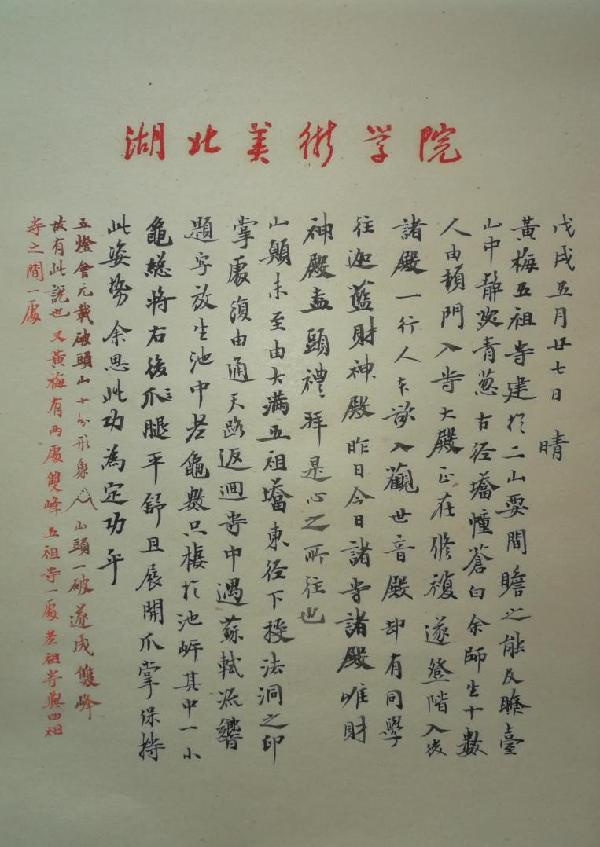 湖北美術学院
戊戌五月廿七日 晴
黃梅五祖寺建於二山要間瞻之能及瞻臺
山中靜寂青葱古径墖幢蒼白余師生十數
人由頓門入寺大殿正在修複遂登階入後
諸殿一行人右欲入觀世音殿却有同學
往迦藍財神殿昨日今日諸寺諸殿唯財
神殿盍頭禮拜是心之所往也
山顛未至由大滿五祖墖東径下授法洞之印
掌處須由通天路返迴寺中遇蘇軾流響
題字放生池中老龜數只棲於池岸其中一小
龜緩將右後爪腿平舒且展開爪掌保持
此姿勢余思此功為定功乎
五燈會元載破頭山十分形象山頭一破遂成雙峰
故有此說也又黃梅有兩處雙峰五祖寺一處老祖寺與四祖
寺之間一處